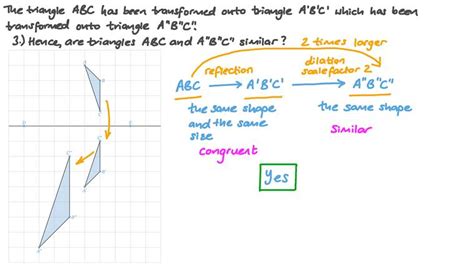 The triangle ABC has been transformed onto triangle A'B'C' which has been
transformed onto triangle A"B"C".
3.) Hence, are triangles ABC and A"B"C" similar? 2 times larger
reflection
dilation
scale factor 2
ABC → A'B'C' → A"B"C"
the same shape
and the same
size
the same shape
congruent
similar
Yes